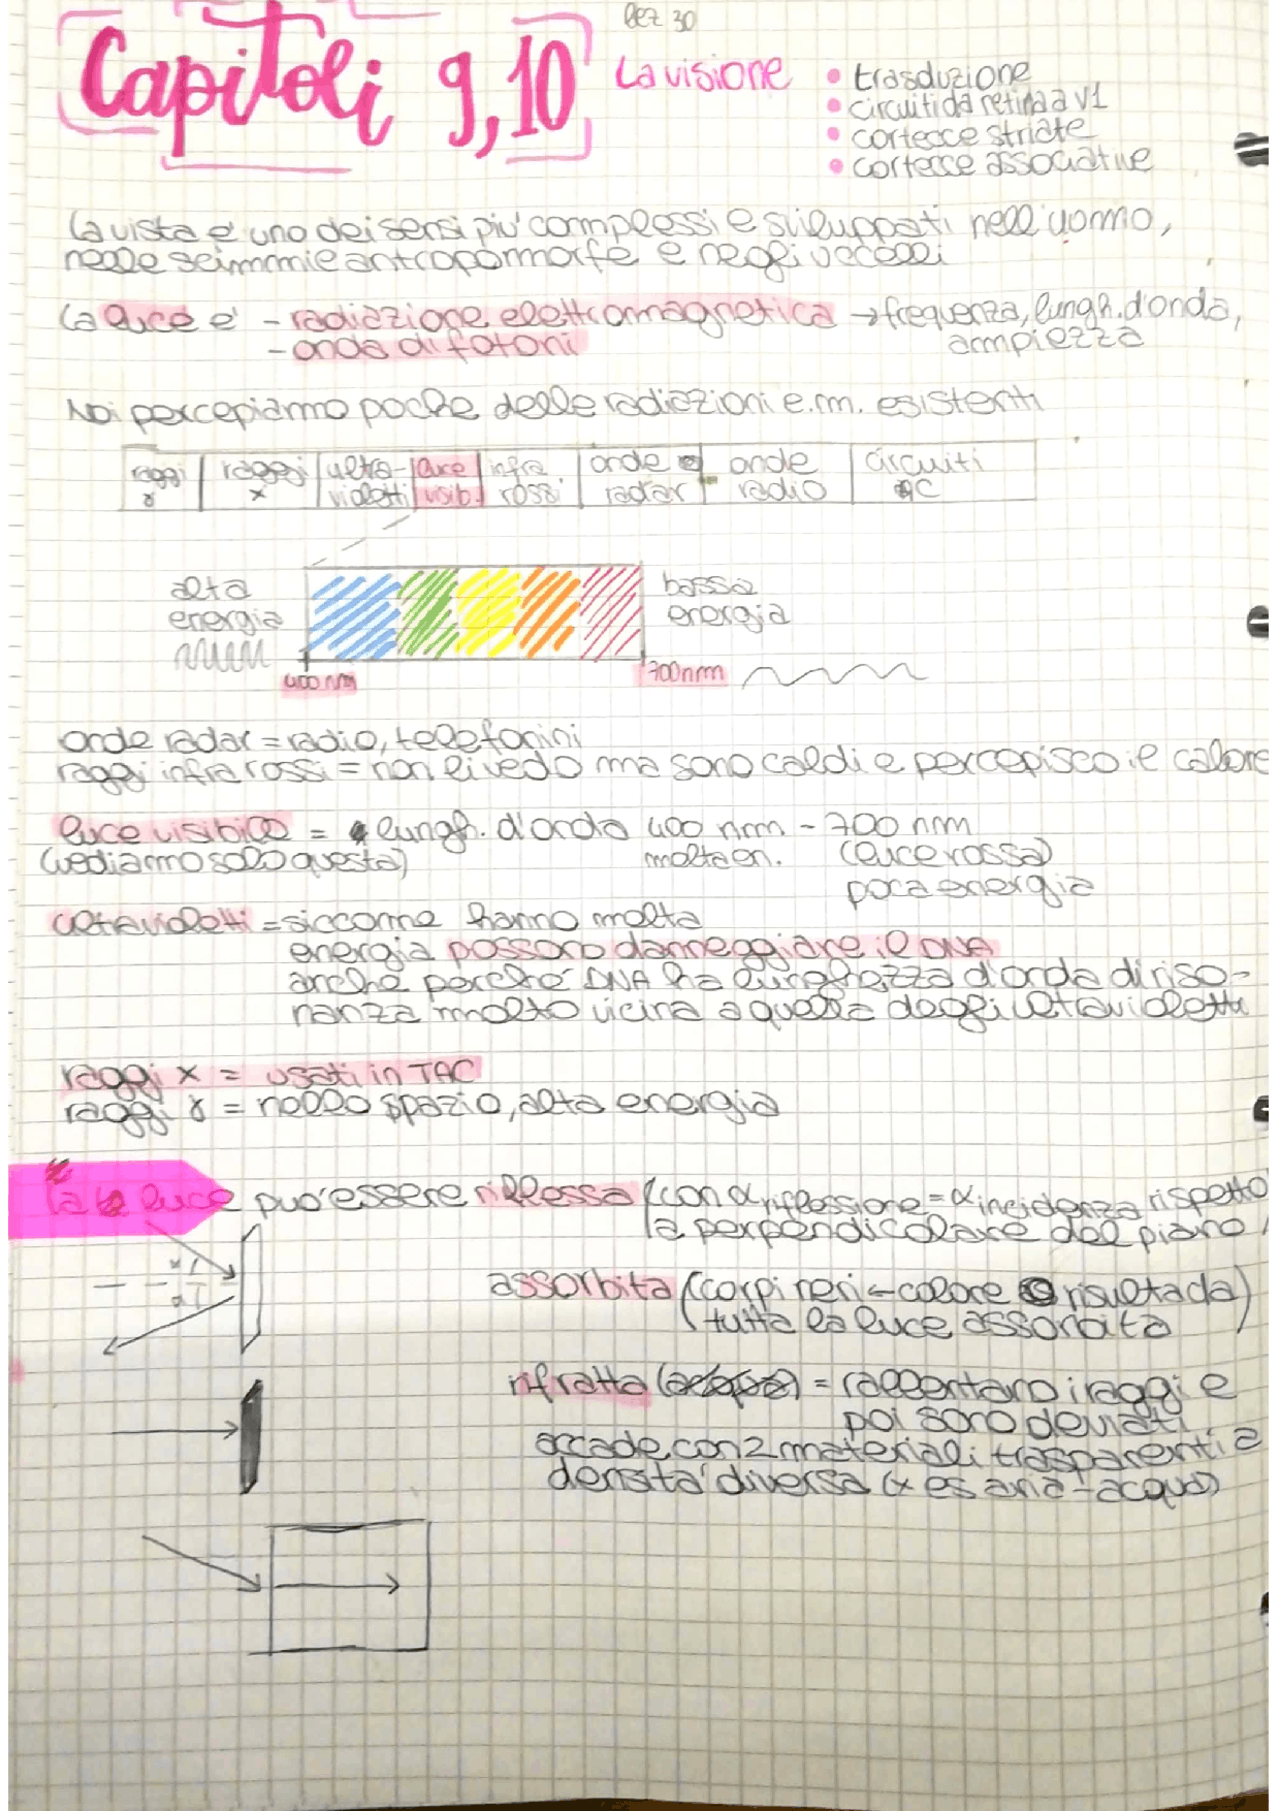 lez 30
Capitoli 9,10
La visione
• trasduzione
• circuiti da retina a V1
• cortecce striate
• cortecce associative
La vista e' uno dei sensi piu' complessi e sviluppati nell'uomo,
nelle scimmie antropomorfe e negli uccelli
La luce e' - radiazione elettromagnetica → frequenza, lungh. d'onda,
ampiezza
- onda di fotoni
Noi percepiamo poche delle radiazioni e.m. esistenti
raggi γ | raggi x | ultra-violetti | luce visib. | infra rossi | onde radar | onde radio | circuiti AC
alta
energia
bassa
energia
400 nm
700nm
onde radar = radio, telefonini
raggi infrarossi = non li vedo ma sono caldi e percepisco il calore
luce visibile = lungh. d'onda 400 nm - 700 nm
(vediamo solo questa) molta en. (luce rossa)
poca energia
ultravioletti = siccome hanno molta
energia possono danneggiare il DNA
anche perche' DNA ha lunghezza d'onda di riso-
nanza molto vicina a quella degli ultravioletti
raggi x = usati in TAC
raggi γ = nello spazio, alta energia
la luce puo' essere riflessa (con α riflessione = α incidenza rispetto
la perpendicolare del piano)
assorbita (corpi neri ← colore risultada)
tutta la luce assorbita
infratta = rallentano i raggi e
poi sono deviati.
accade con 2 materiali trasparenti a
densita' diversa (x es aria-acqua)